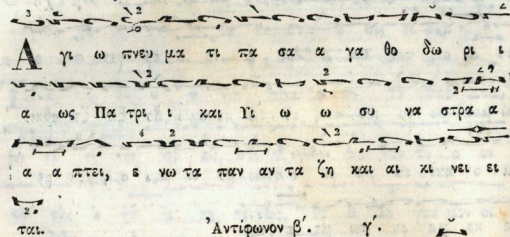 Α γι ω πνευ μα τι πα σα α γα θο δω ρι ι
α ως Πα τρι ι και Υι ω ω συ να στρα α
α α πτει, ε νω τα παν αν τα ζη και αι κι νει ει
ται. Ἀντίφωνον β΄. γ΄.